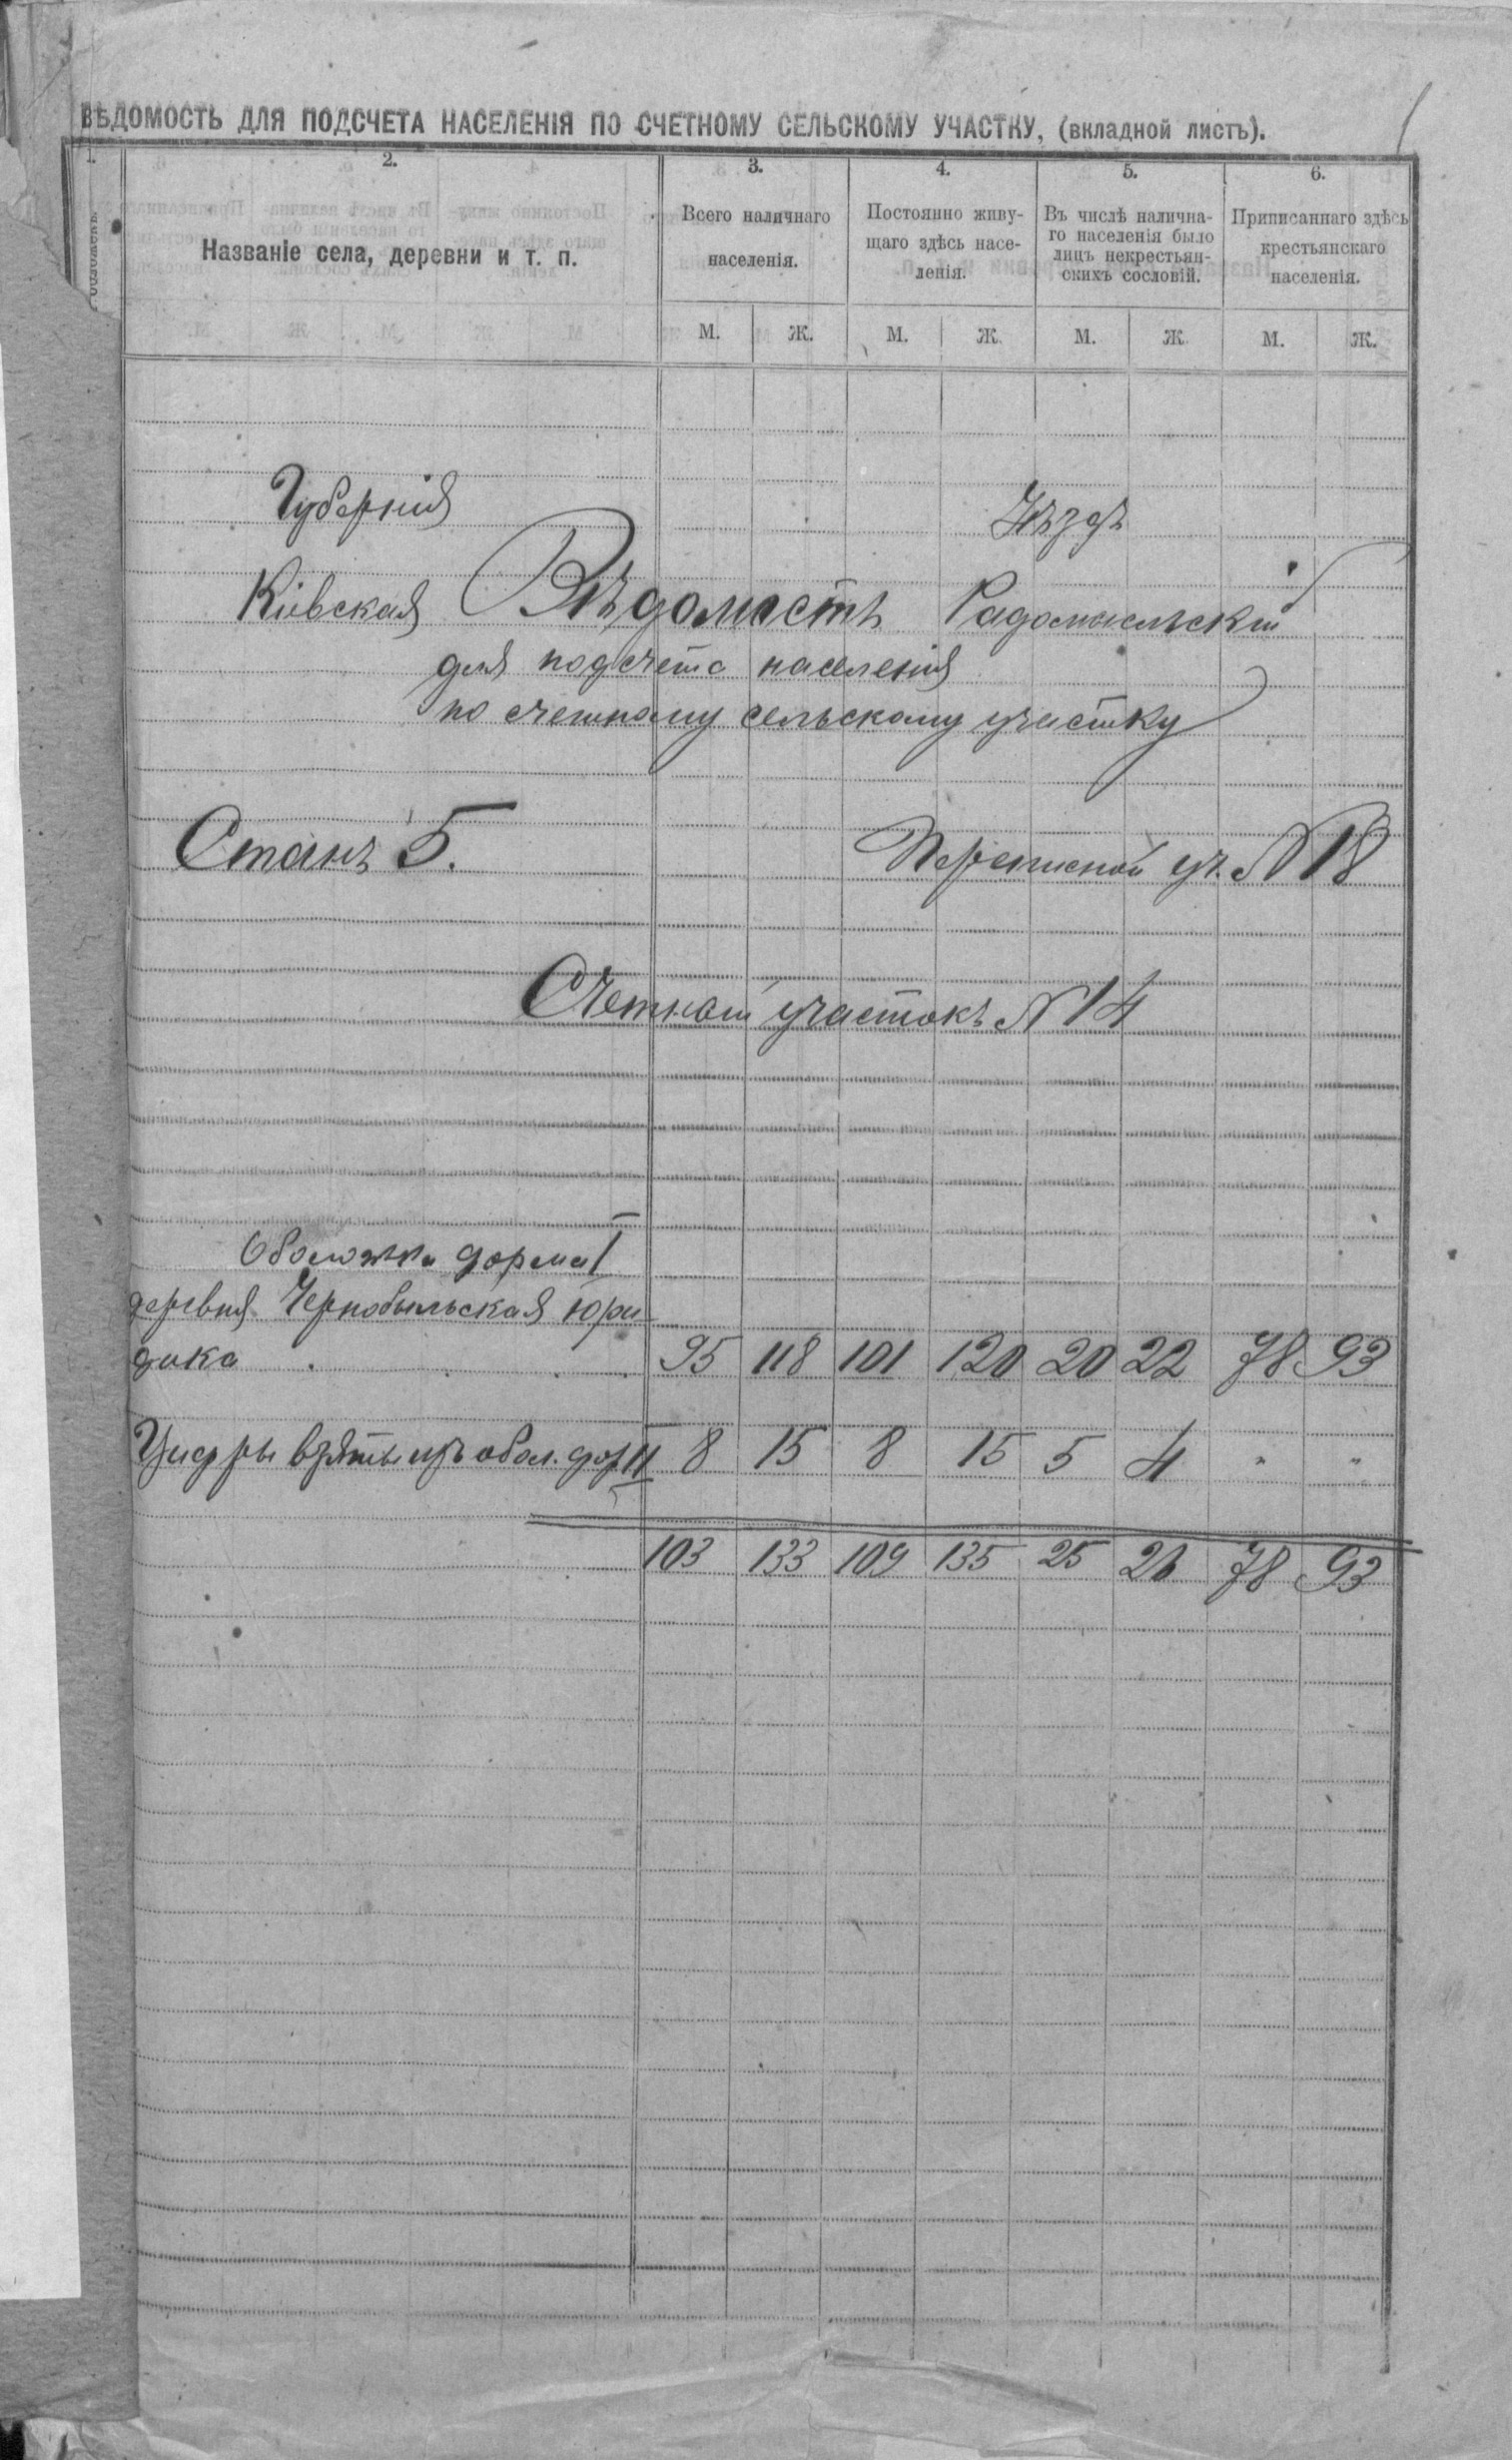 ВѢДОМОСТЬ ДЛЯ ПОДСЧЕТА НАСЕЛЕНІЯ ПО СЧЕТНОМУ СЕЛЬСКОМУ УЧАСТКУ, (вкладной листъ).
1. 2. 3. 4. 5. 6.
Названіе села, деревни и т. п.
Всего наличнаго
населенія.
Постоянно живу-
щаго здѣсь насе-
ленія.
Въ числѣ налична-
го населенія было
лицъ некрестьян-
скихъ сословій.
Приписаннаго здѣсь
крестьянскаго
населенія.
М. Ж. М. Ж. М. Ж. М. Ж.
Губернія Уѣздъ
Кіевская Вѣдомость Радомысльскій
для подсчета населенія
по счетному сельскому участку
Станъ 5. Переписной уч. № 18
Счетный участокъ № 14
Обложка форма I
деревня Чернобыльская Юри-
дика . . . . 95 118 101 120 20 22 78 93
Цифры взяты изъ облож. фор II 8 15 8 15 5 4 " "
103 133 109 135 25 26 78 93